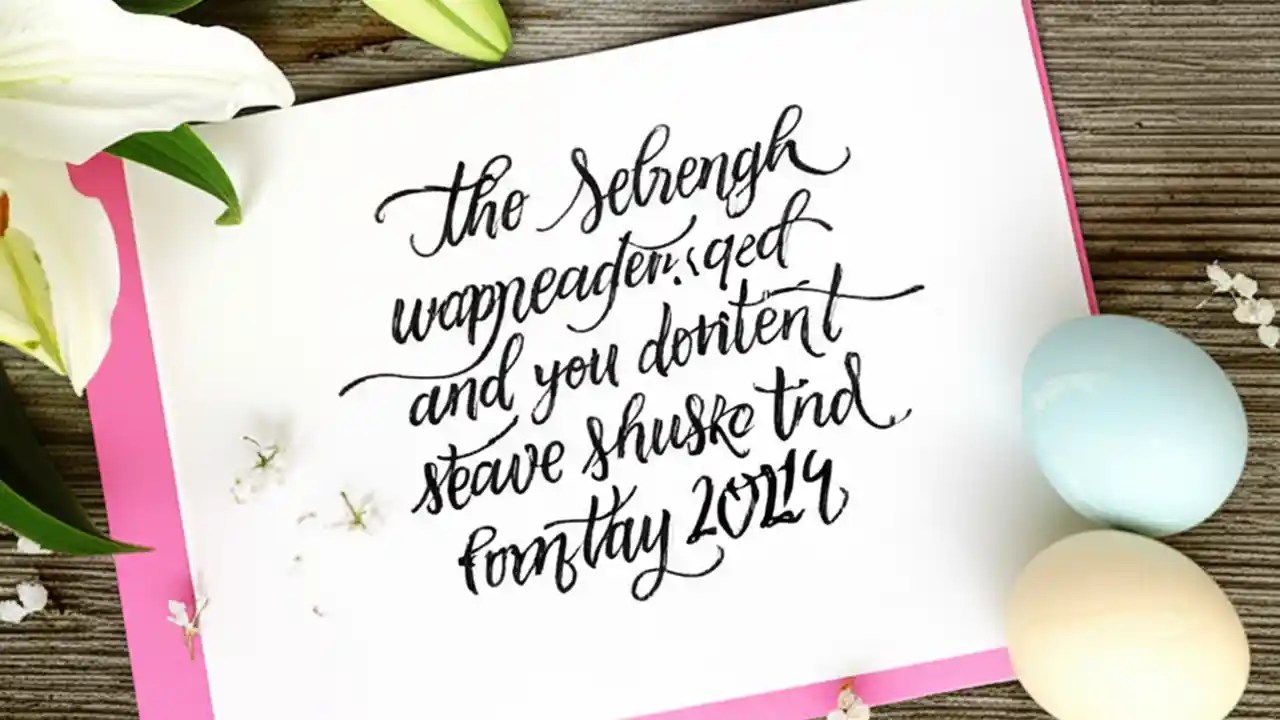 the Selrengh
wappreader,s qed
and you dontent
steave shuske tnd
fomthay 2024